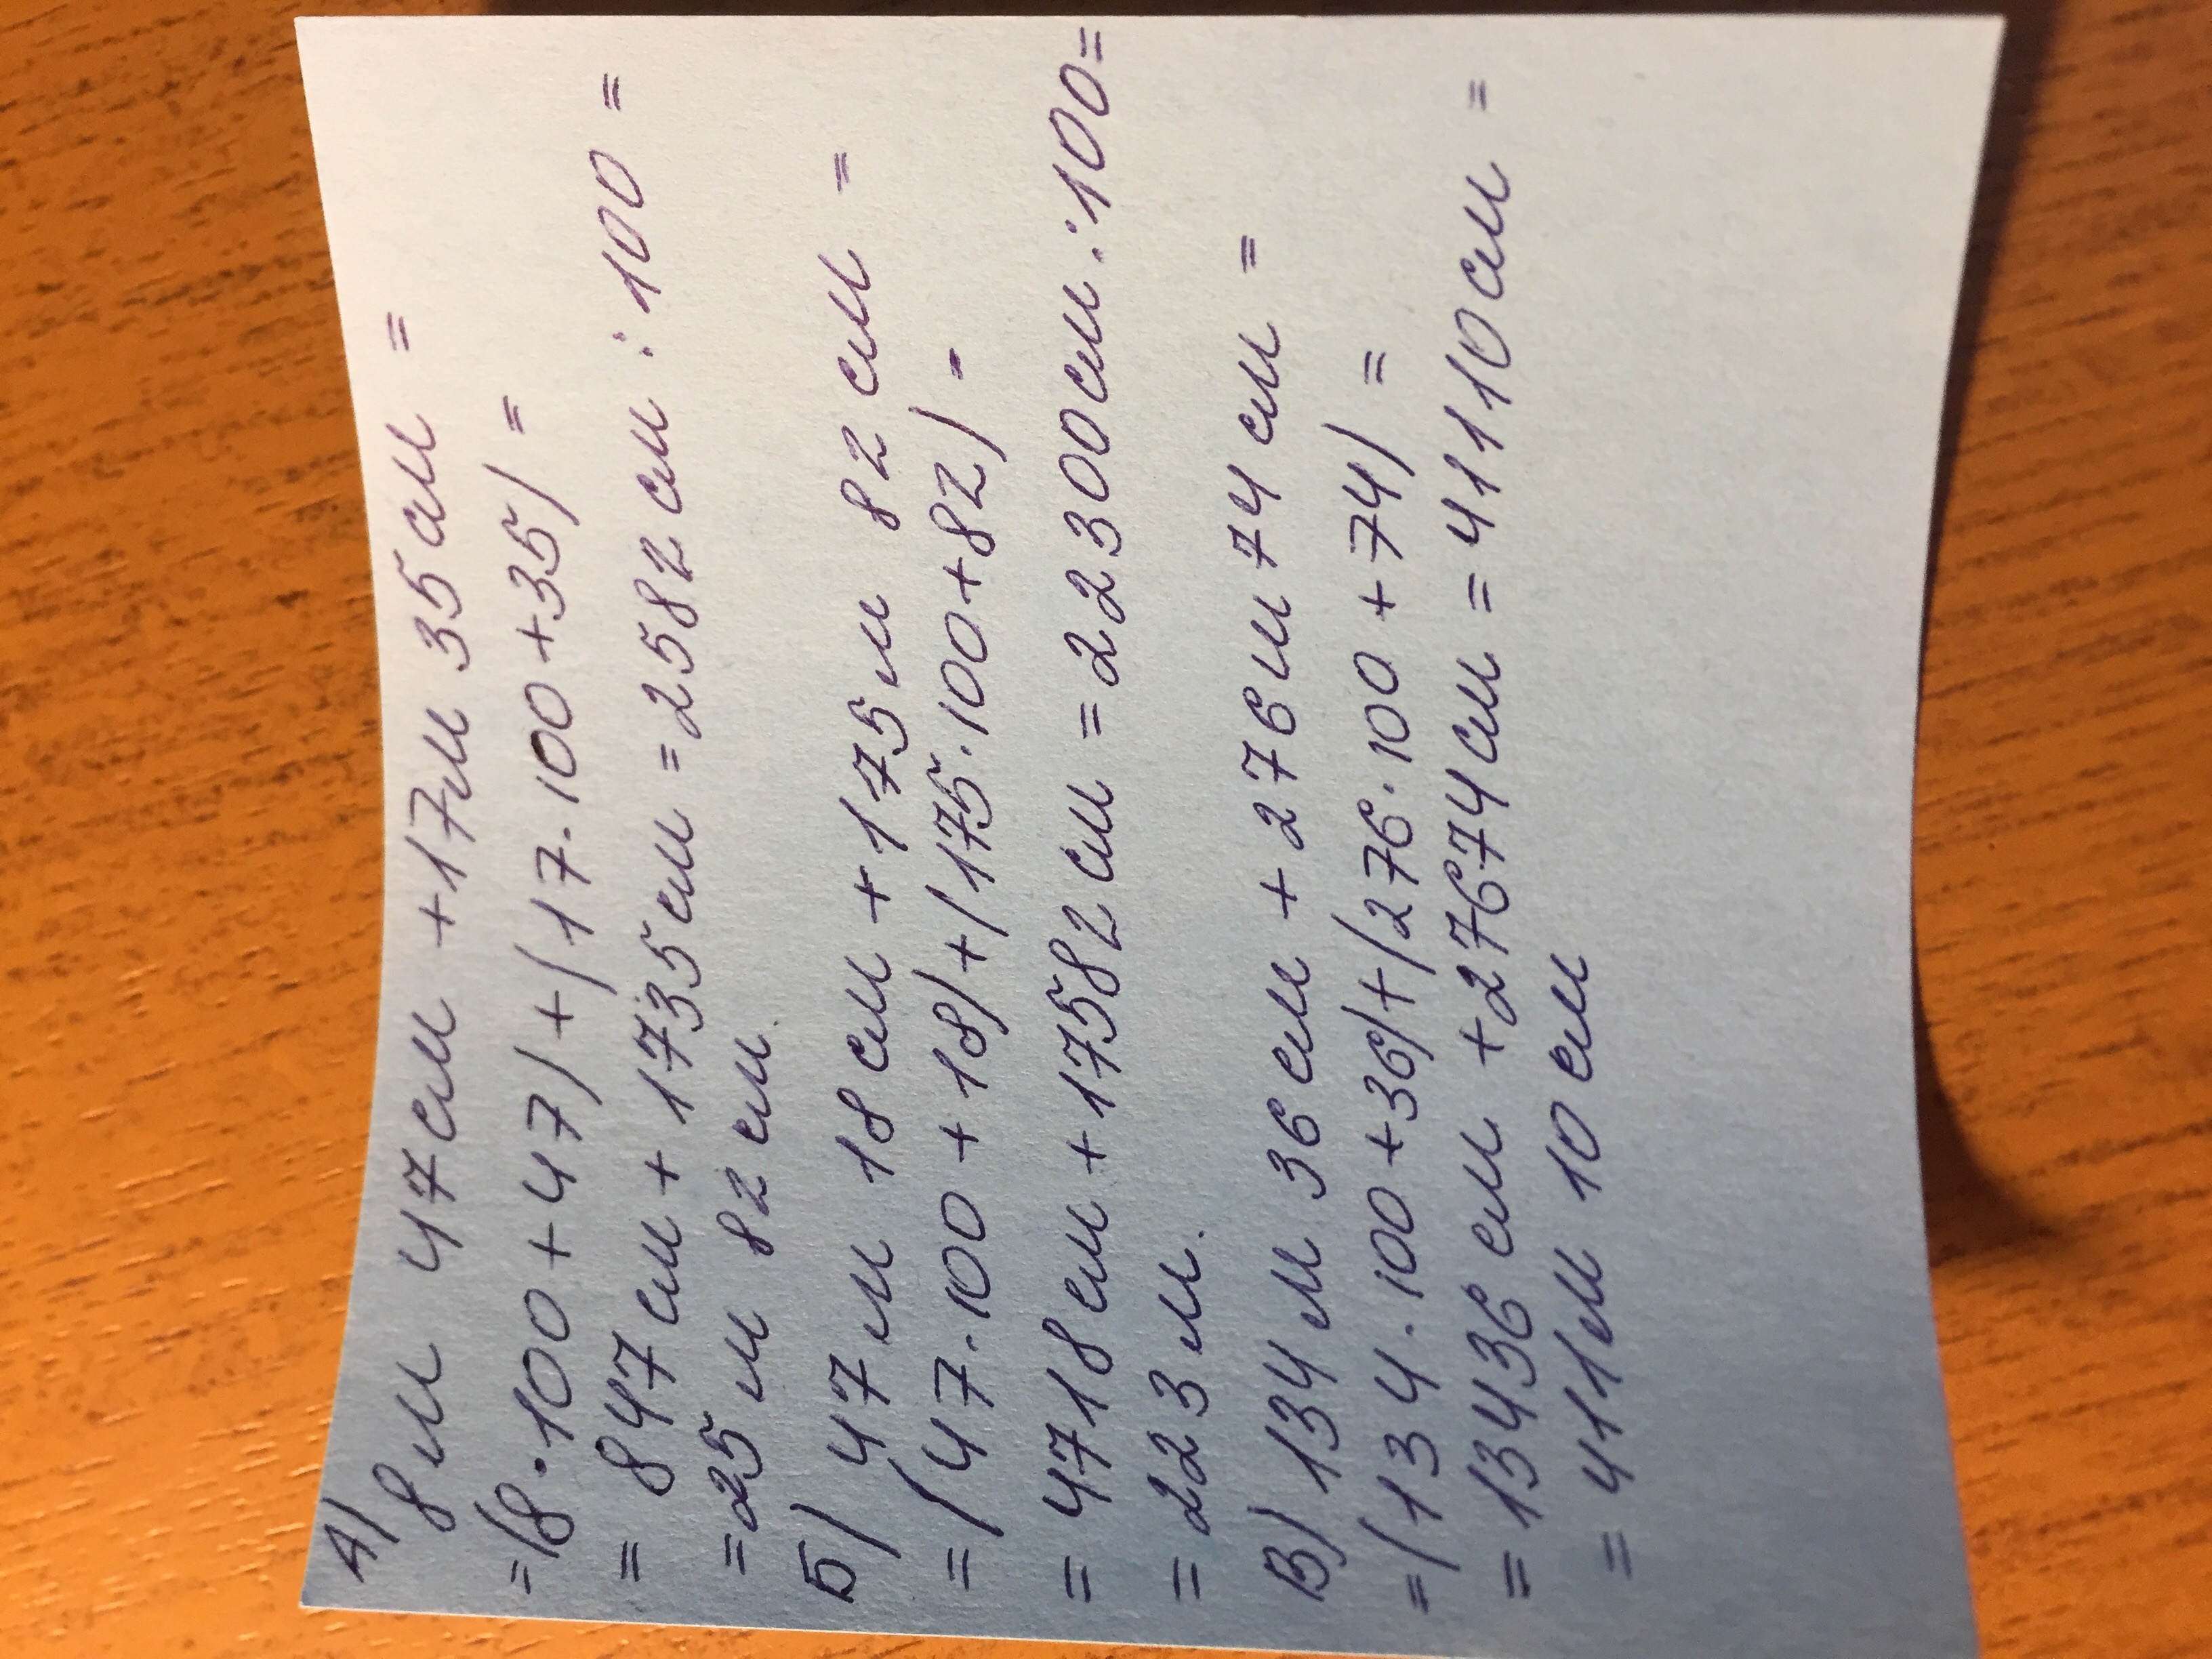 А) 8 м 47 см + 17 м 35 см =
= (8 · 100 + 47) + (17 · 100 + 35) =
= 847 см + 1735 см = 2582 см : 100 =
= 25 м 82 см.
Б) 47 м 18 см + 175 м 82 см =
= (47 · 100 + 18) + (175 · 100 + 82) -
= 4718 см + 17582 см = 22300 см : 100 =
= 223 м.
В) 134 м 36 см + 276 м 74 см =
= (134 · 100 + 36) + (276 · 100 + 74) =
= 13436 см + 27674 см = 41110 см =
= 411 м 10 см